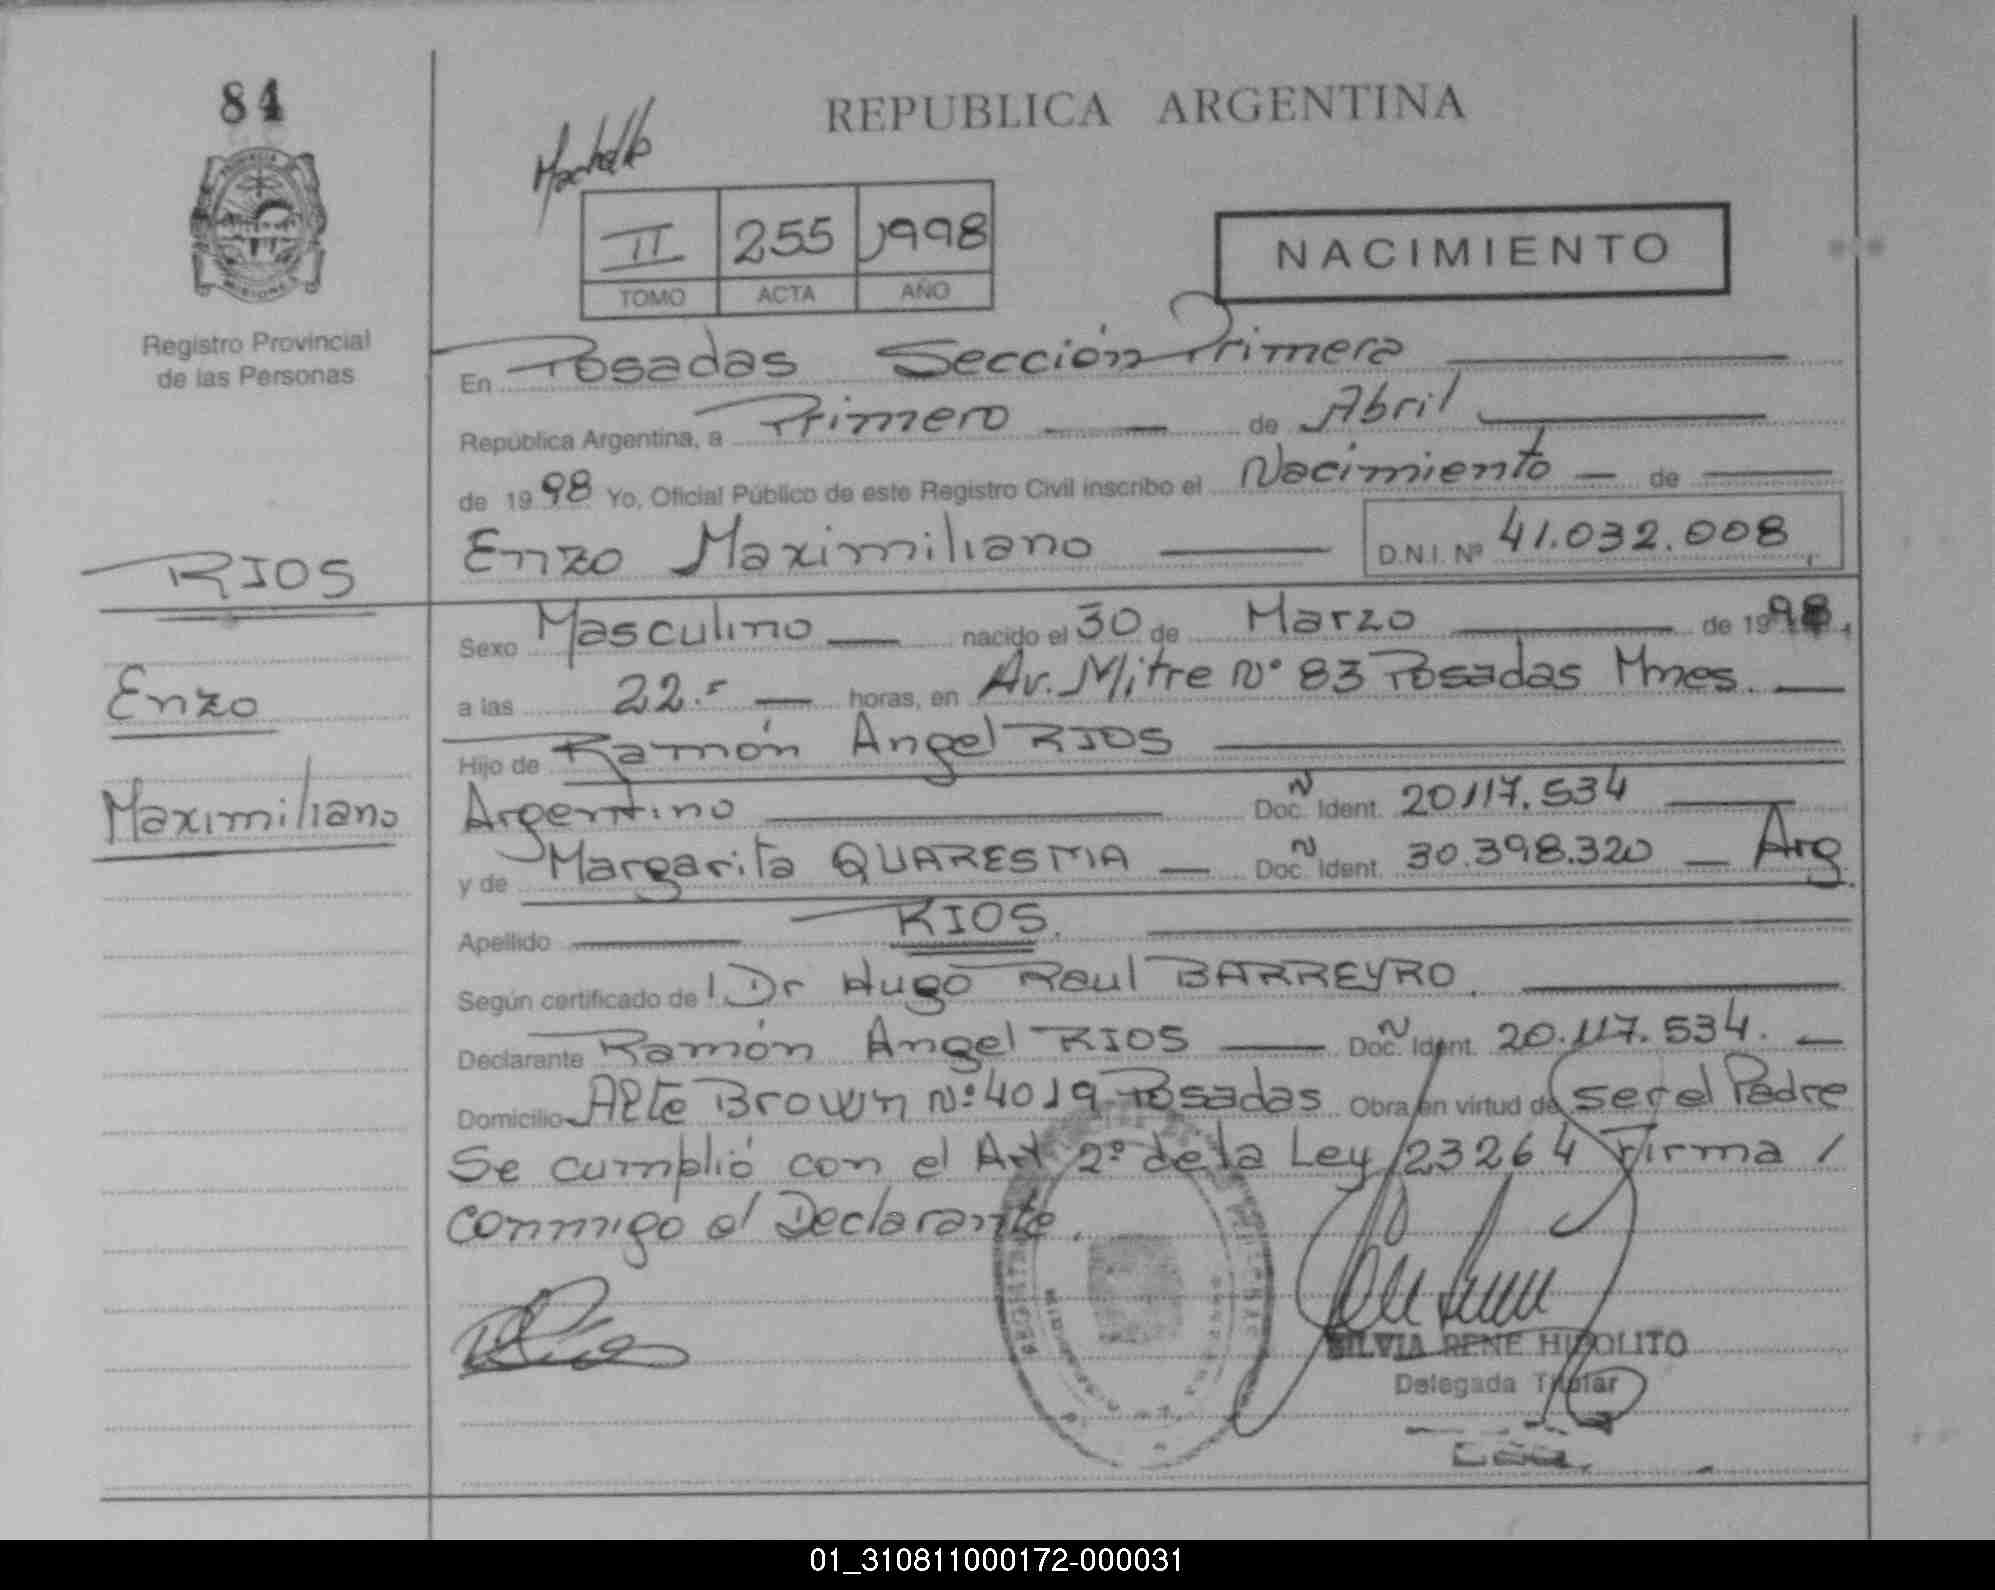 84
REPUBLICA ARGENTINA
II 255 1998
TOMO ACTA AÑO
NACIMIENTO
Registro Provincial
de las Personas
En Posadas Sección Primera
República Argentina, a Primero de Abril
de 1998 Yo, Oficial Público de este Registro Civil inscribo el Nacimiento de
Enzo Maximiliano D.N.I. Nº 41.032.008
RIOS
Enzo
Maximiliano
Sexo Masculino nacido el 30 de Marzo de 1998.
a las 22.- horas, en Av. Mitre Nº 83 Posadas Mnes.
Hijo de Ramón Angel RIOS
Argentino Doc. Ident. 20117.534
y de Margarita QUARESMA Doc. Ident. 30.398.320 Arg.
Apellido RIOS.
Según certificado de Dr Hugo Raul BARREYRO.
Declarante Ramón Angel RIOS Doc. Ident. 20.117.534.
Domicilio Alte Brown Nº: 4019 Posadas Obra en virtud de ser el Padre
Se cumplió con el Art 2º de la Ley 23264 Firma /
conmigo el Declarante.
SILVIA RENE HIPOLITO
Delegada Titular
01_310811000172-000031